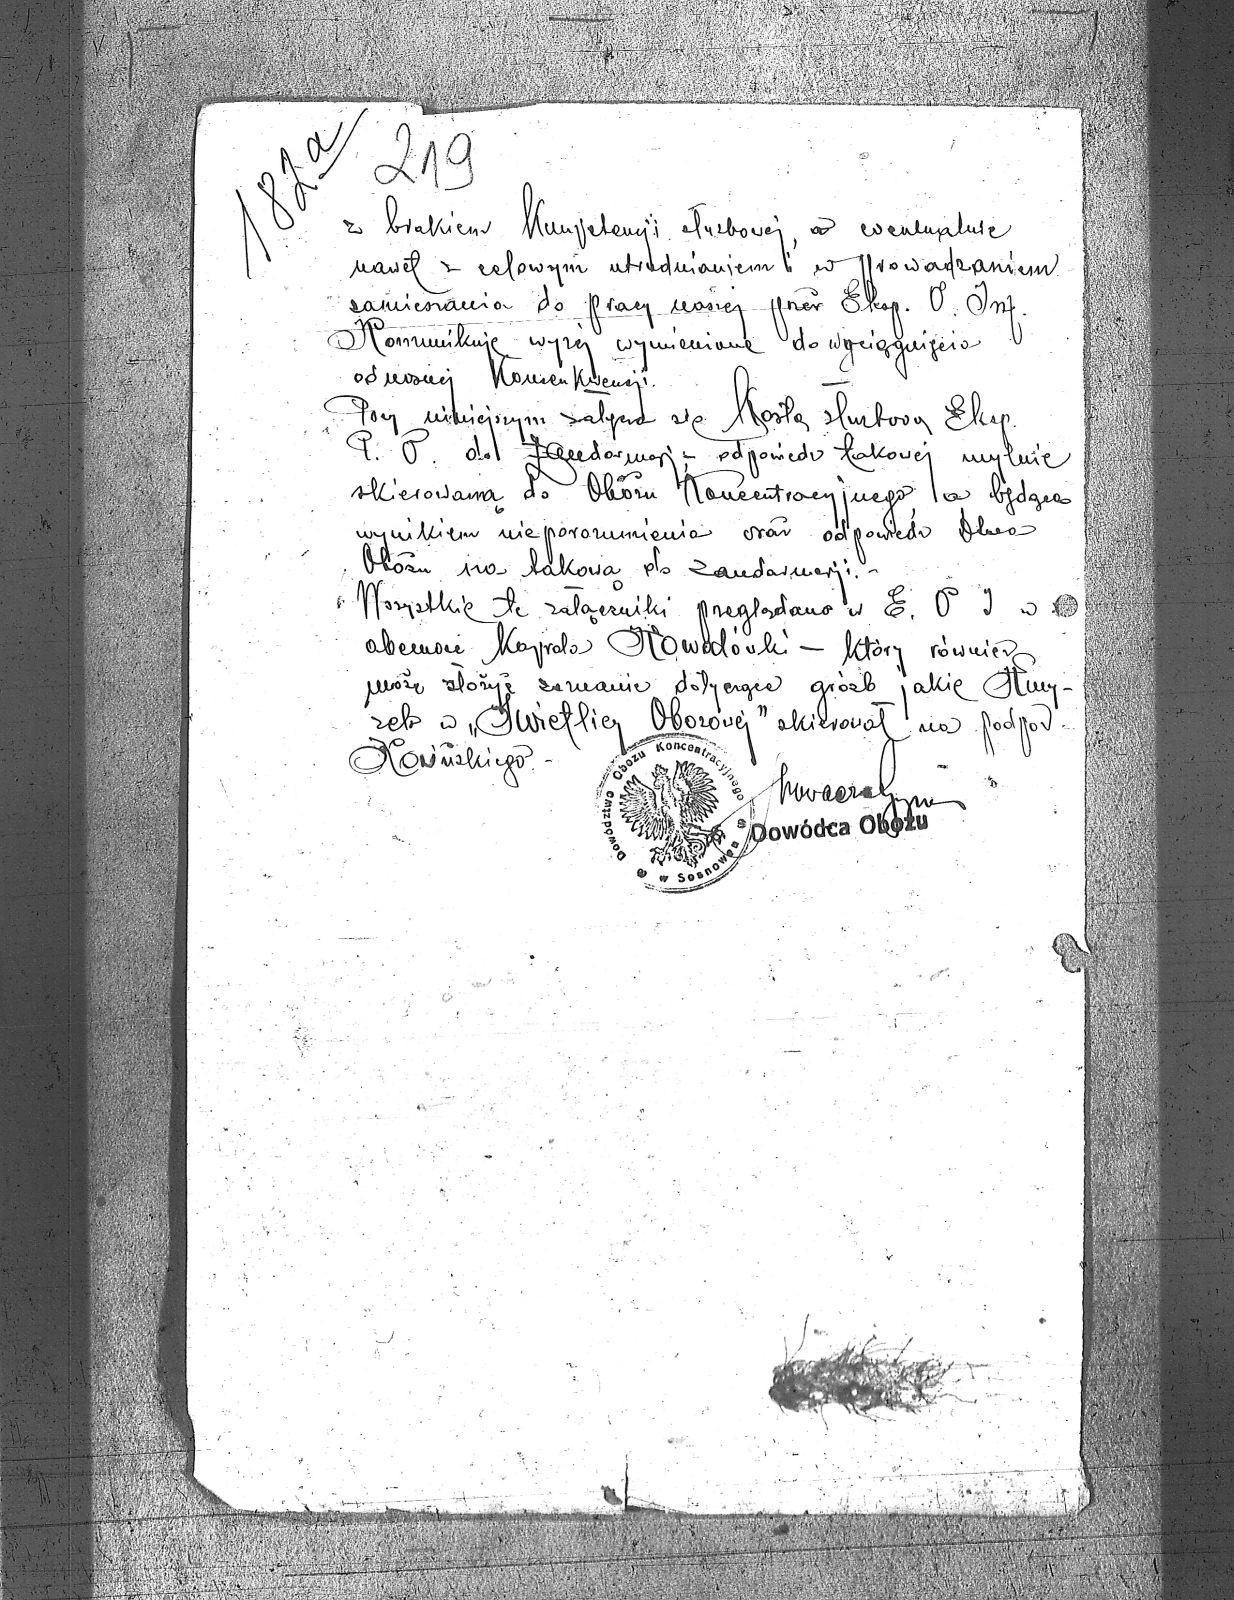 182a
219
z brakiem Kompetencji służbowej, a ewentualnie
nawet z celowym utrudnianiem i w prowadzaniem
zamieszania do pracy naszej przez Eksp. O. Inf.
Komunikuję wyżej wymienione do wyciągnięcia
odnośnej Konsenkwencji.
Przy niniejszym załącza się Kartkę służbową Eksp.
P. O. do Żandarmerji, odpowiedź takowej mylnie
skierowaną do Obozu Koncentracyjnego a będąca
wynikiem nieporozumienia oraz odpowiedź
Obozu na takową do Żandarmerji.-
Wszystkie te załączniki przeglądano w E. O I w
obecności Kaprala — który również
może złożyć zeznanie dotyczące gróźb jakie
w „Świetlicy Obozowej" skierował na podpor.
Dowództwo Obozu Koncentracyjnego
w Sosnowcu
Dowódca Obozu